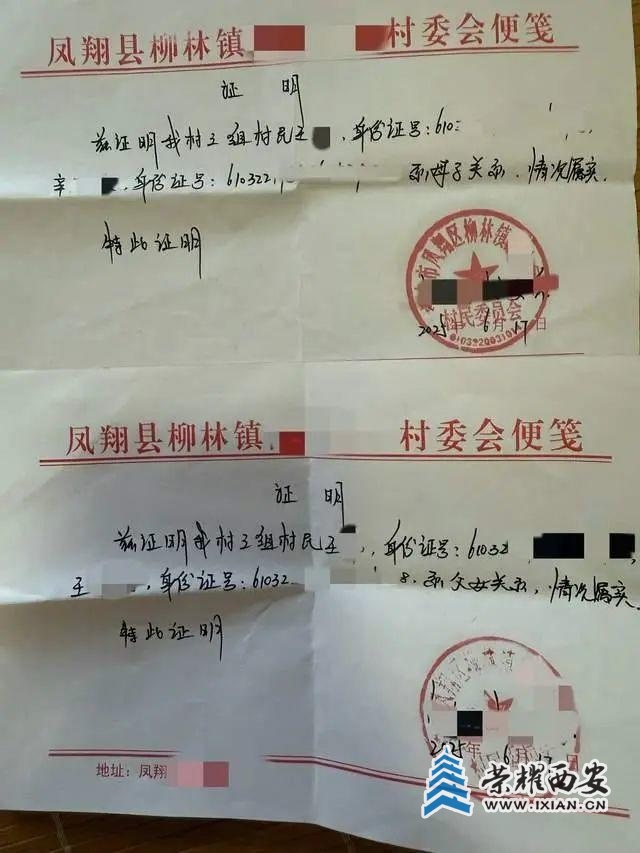 凤翔县柳林镇 村委会便笺
证 明
兹证明我村三组村民王 ,身份证号:610
辛 ,身份证号:610322, 系母子关系,情况属实。
特此证明
市凤翔区柳林镇
村民委员会
2025年6月17日
凤翔县柳林镇 村委会便笺
证 明
兹证明我村三组村民王 ,身份证号:61032
王 ,身份证号:61032 8.系父女关系,情况属实
特此证明
2025年6月17日
地址:凤翔
荣耀西安
WWW.IXIAN.CN